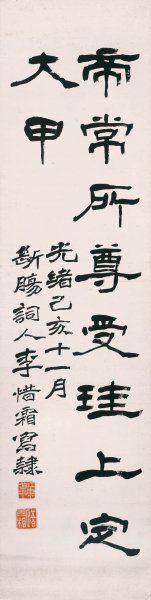 帝常所尊受珪上定
大甲
光緒己亥十一月
斷腸詞人李惜霜寫隸